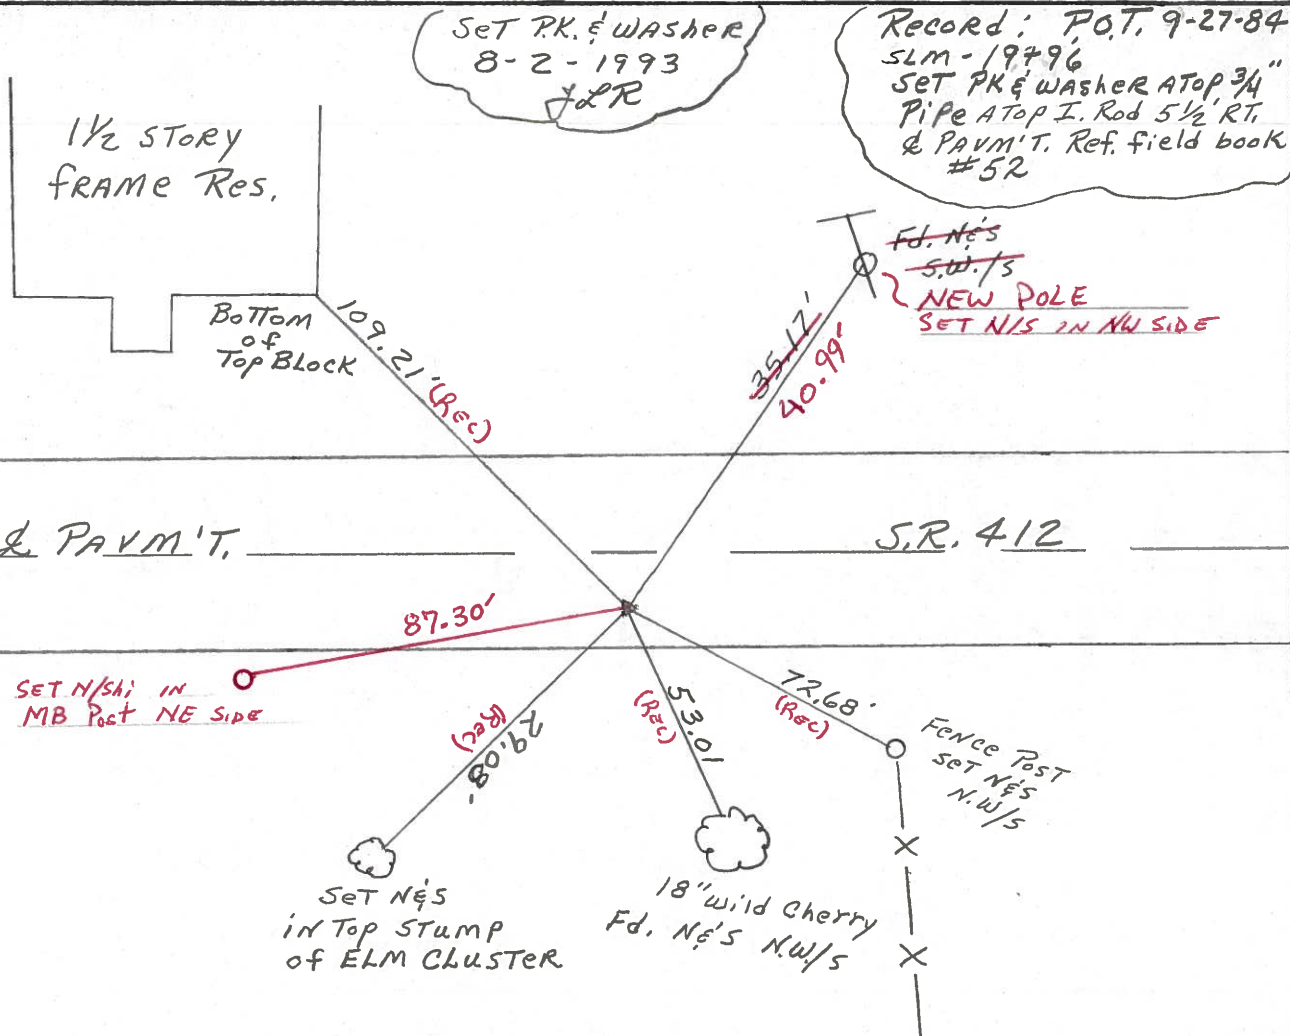 SET P.K. & WASHER
8-2-1993
JLR
Record: P.O.T. 9-27-84
SLM-19+96
SET PK & WASHER ATOP 3/4"
PiPe ATOP I. Rod 5 1/2' RT.
℄ PAVM'T. Ref. field book
#52
1 1/2 STORY
fRAMe Res.
Fd. N&'s
S.W./s
NEW POLE
SET N/S IN NW SIDE
BoTTom
of
Top BLock
109.21' (REC)
35.17'
40.99'
℄ PAVM'T.
S.R. 412
87.30'
SET N/Shi IN
MB Post NE SIDE
29.08'
(REC)
53.01
(REC)
72.68'
(REC)
FeNce PosT
seT N&'s
N.W/s
SeT N&S
iN Top STUMP
of ELM CLUSTER
18" wild Cherry
Fd. N&'S N.W./s